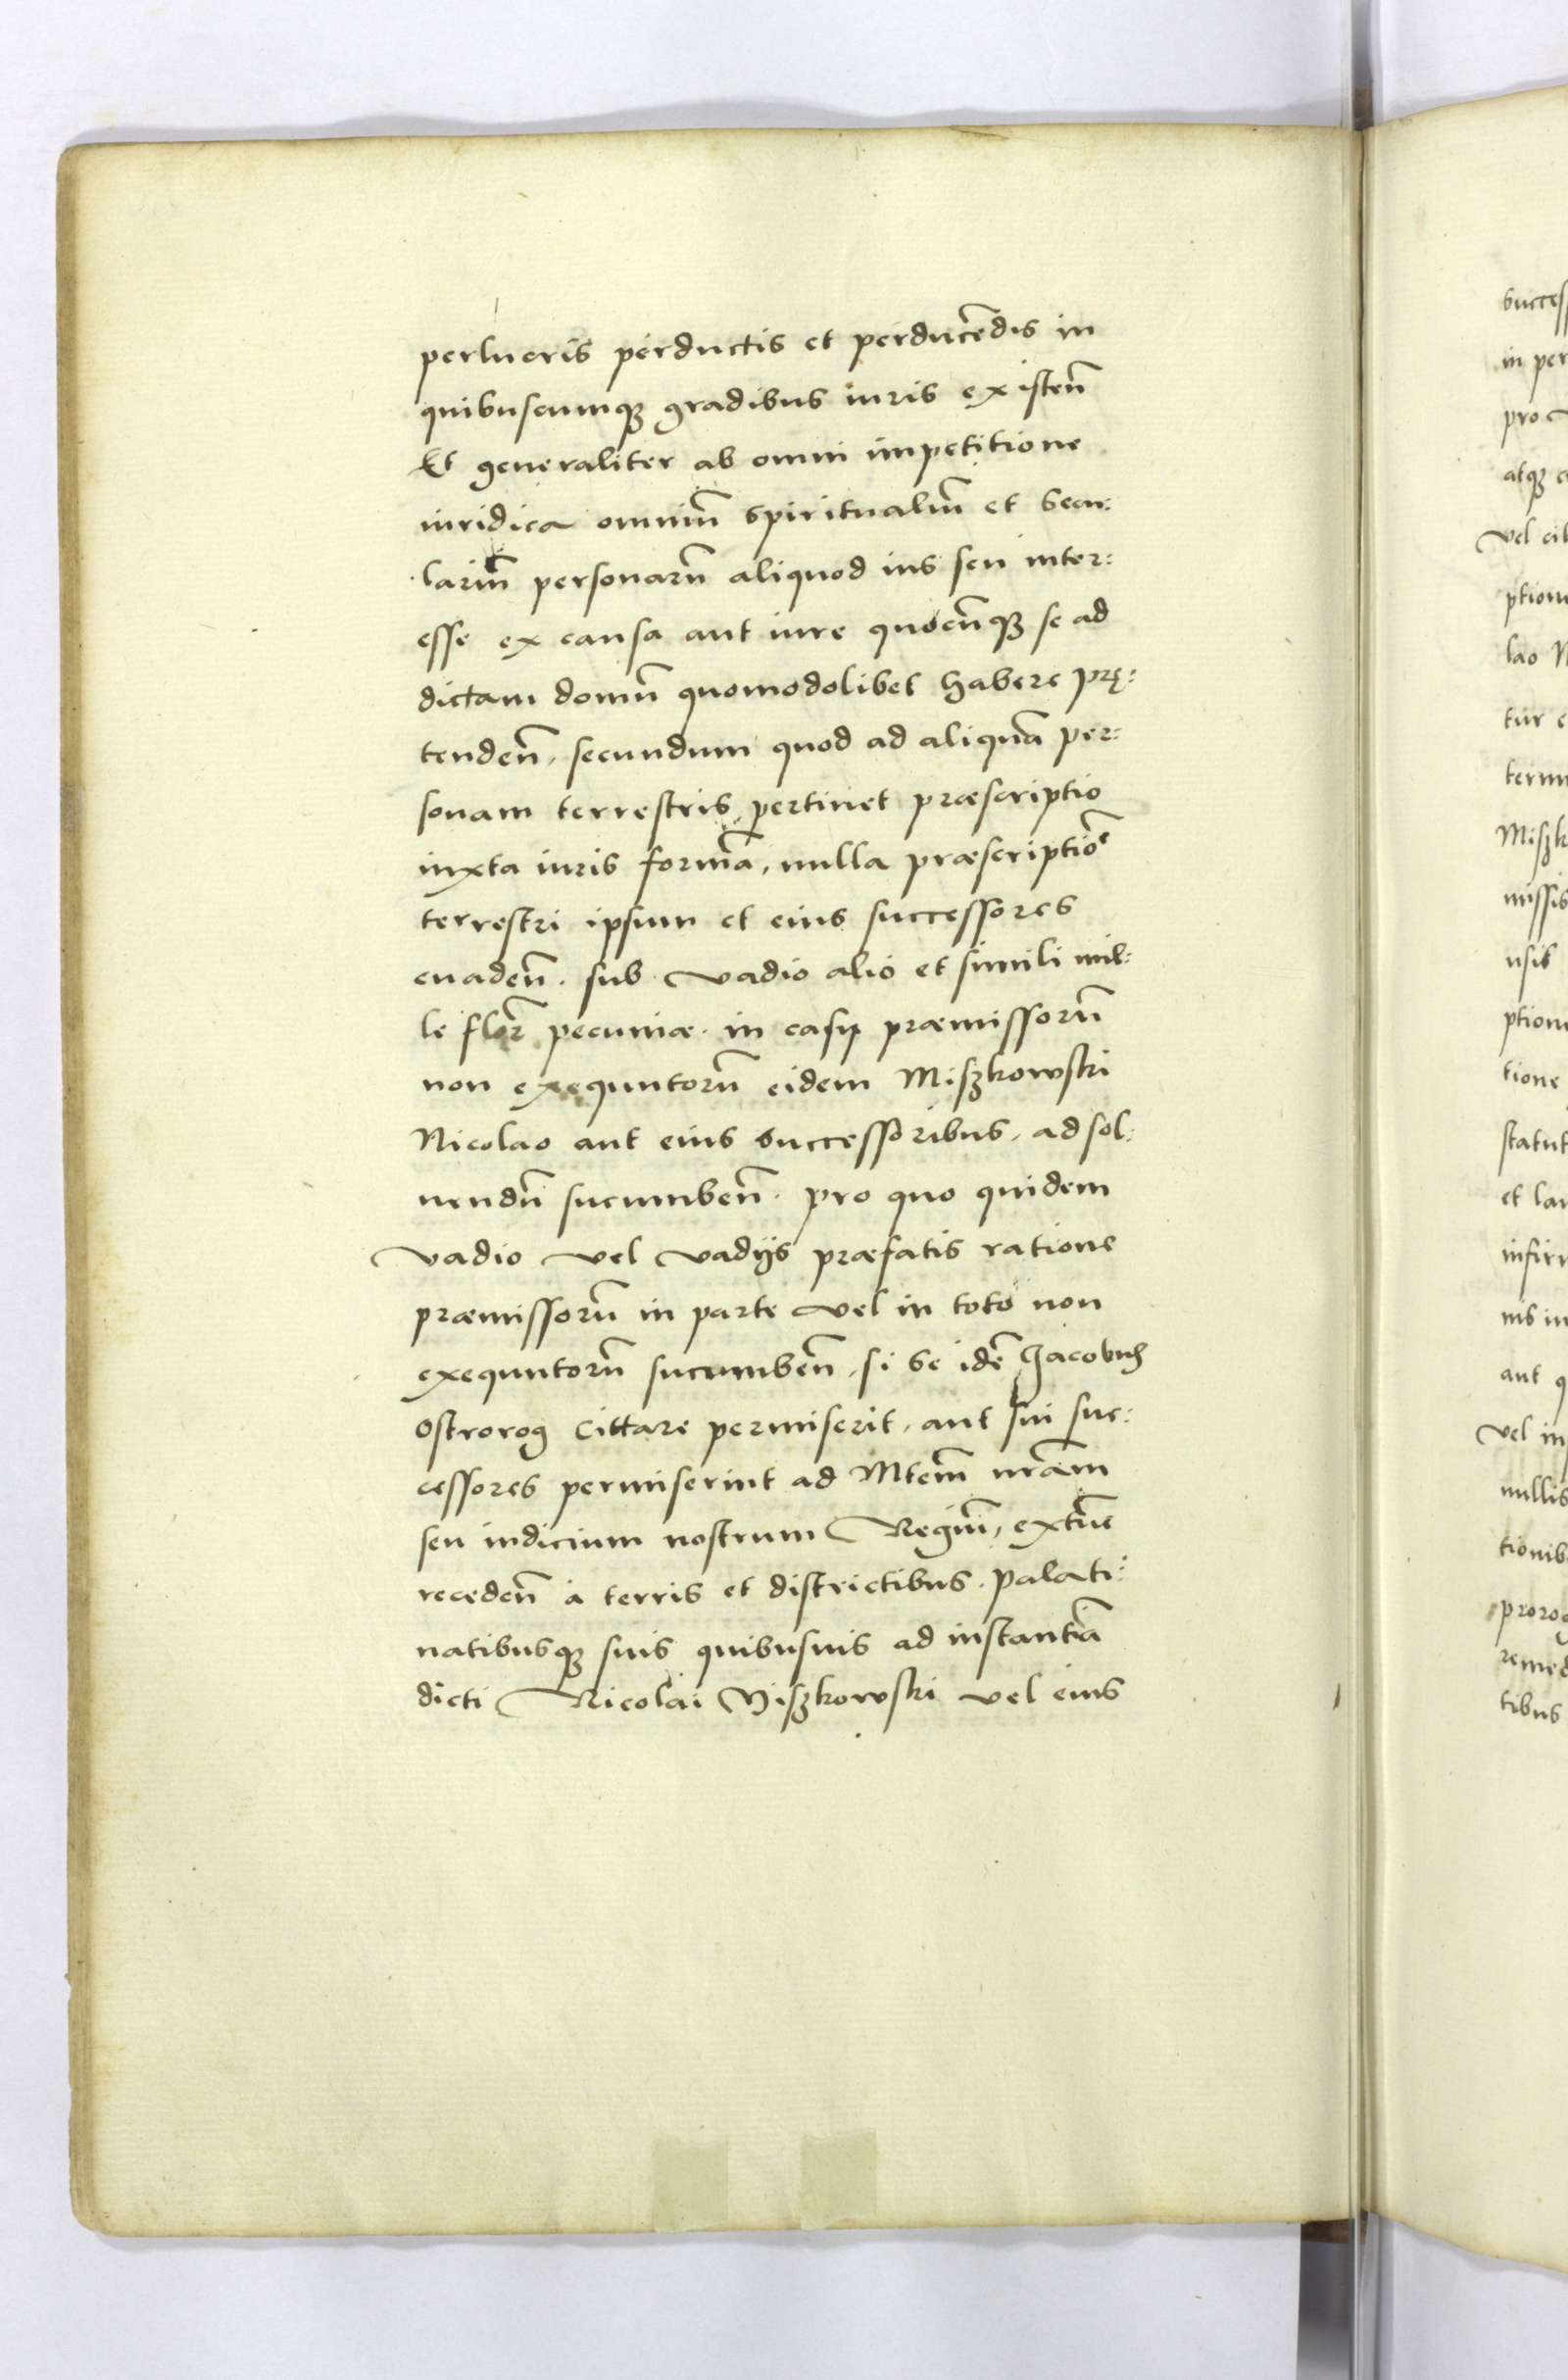 perlucris perductis et perducēdis in
quibuscumqȝ gradibus iuris existeñ
Et generaliter ab omni impetitione
iuridica omniū spiritualiū et Secu:
lariū personarū aliquod ius seu inter:
esse ex causa aut iure quocūqȝ se ad
dictam domū quomodolibet habere prę:
tendeñ, secundum quod ad aliquā per:
sonam terrestris pertinet præscriptio
iuxta iuris formā, nulla præscriptiōe
terrestri ipsum et eius successores
euadeñ. sub vadio alio et simili mil:
le flor̃ pecuniæ. in casu præmissorū
non exequutorū eidem Miszkowski
Nicolao aut eius Successoribus, ad sol:
uendū sucumbeñ. pro quo quidem
vadio vel vadijs præfatis ratione
præmissorū in parte vel in toto non
exequutorū sucumbeñ, si Se idē Jacobus
Ostrorog Cittare permiserit, aut sui suc:
cessores permiserint ad Mtem̄ nr̄am
seu iudicium nostrum Regiū, extūc
recedeñ à terris et districtibus. palati:
natibusqȝ suis quibusuis ad instantiā
dicti Nicolai Miszkowski vel eius
succes
in per
pro
atqȝ
vel cit
ptione
lao N
tur
term
Miszk
missis
usib
ptione
tione
statut
et lau
infir
nis in
aut q
vel in
nullis
tionib
proro
remed
tibus